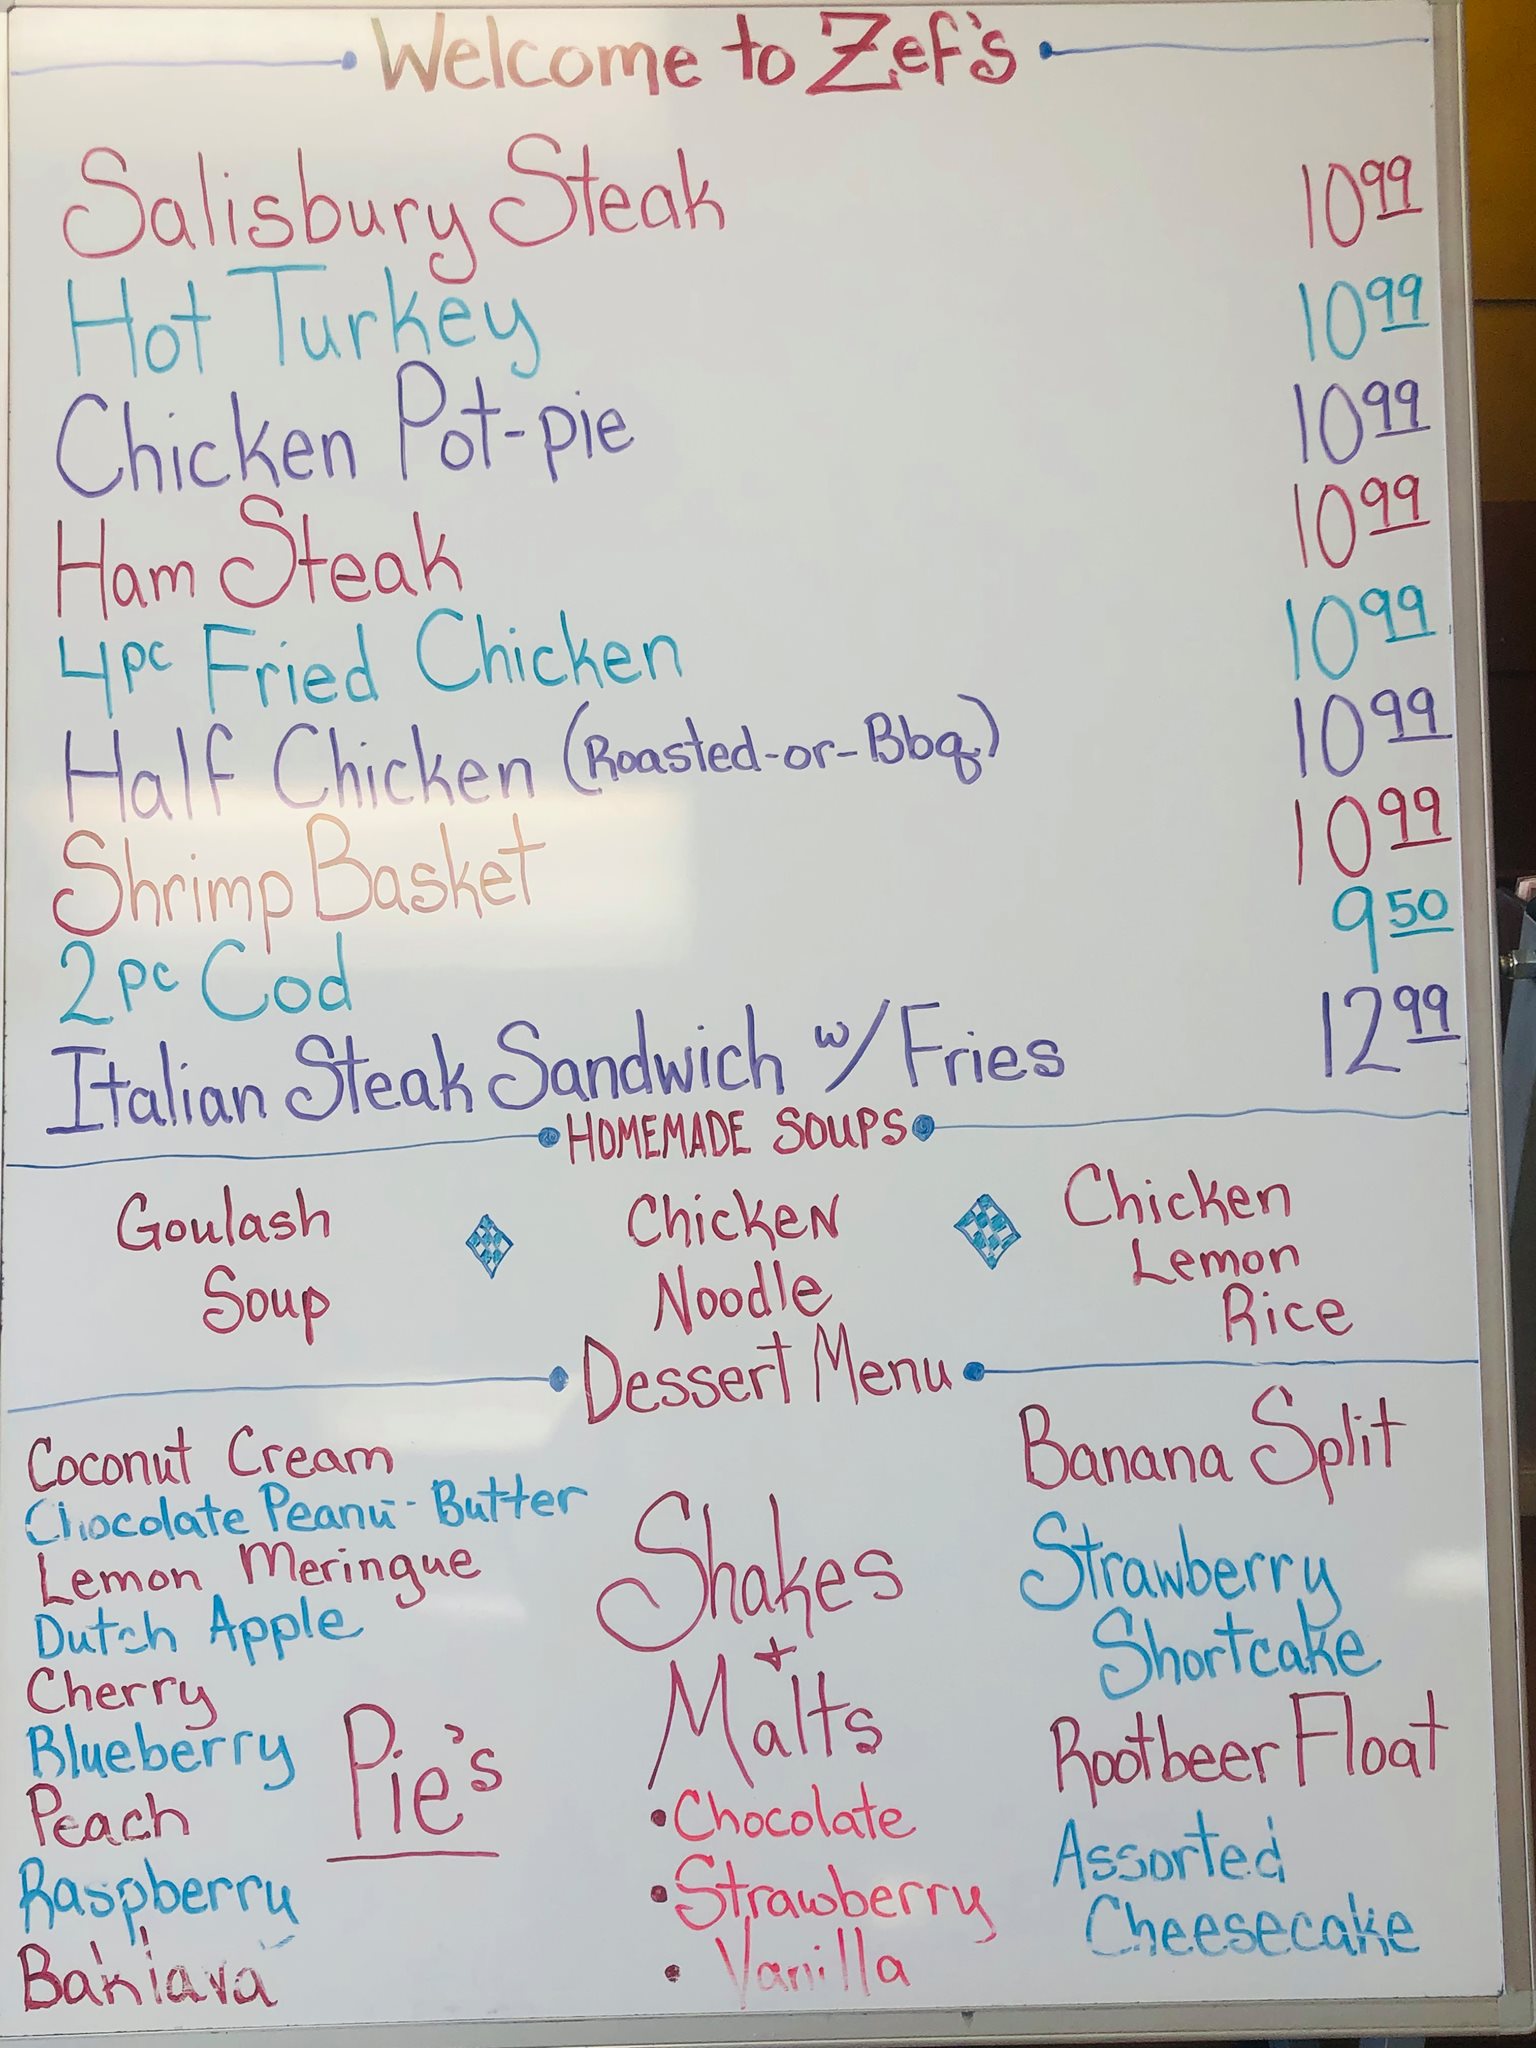 Welcome to Zef's
Salisbury Steak 10.99
Hot Turkey 10.99
Chicken Pot-pie 10.99
Ham Steak 10.99
4pc Fried Chicken 10.99
Half Chicken (Roasted-or-Bbq) 10.99
Shrimp Basket 10.99
2pc Cod 9.50
Italian Steak Sandwich w/ Fries 12.99
HOMEMADE SOUPS
Goulash
Soup
Chicken
Noodle
Chicken
Lemon
Rice
Dessert Menu
Coconut Cream
Chocolate Peanut-Butter
Lemon Meringue
Dutch Apple
Cherry
Blueberry
Peach
Raspberry
Baklava
Pie's
Shakes
+
Malts
• Chocolate
• Strawberry
• Vanilla
Banana Split
Strawberry
Shortcake
Rootbeer Float
Assorted
Cheesecake